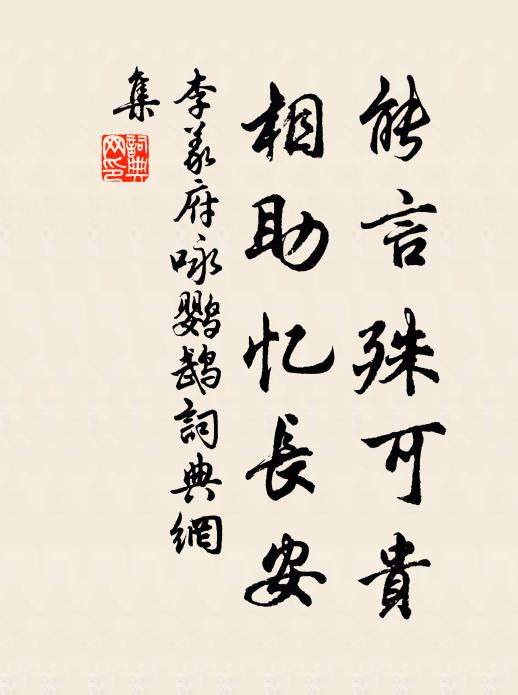 能言殊可貴
相助忆長安
李義府咏鹦鹉詞典網
集
詞典
网印